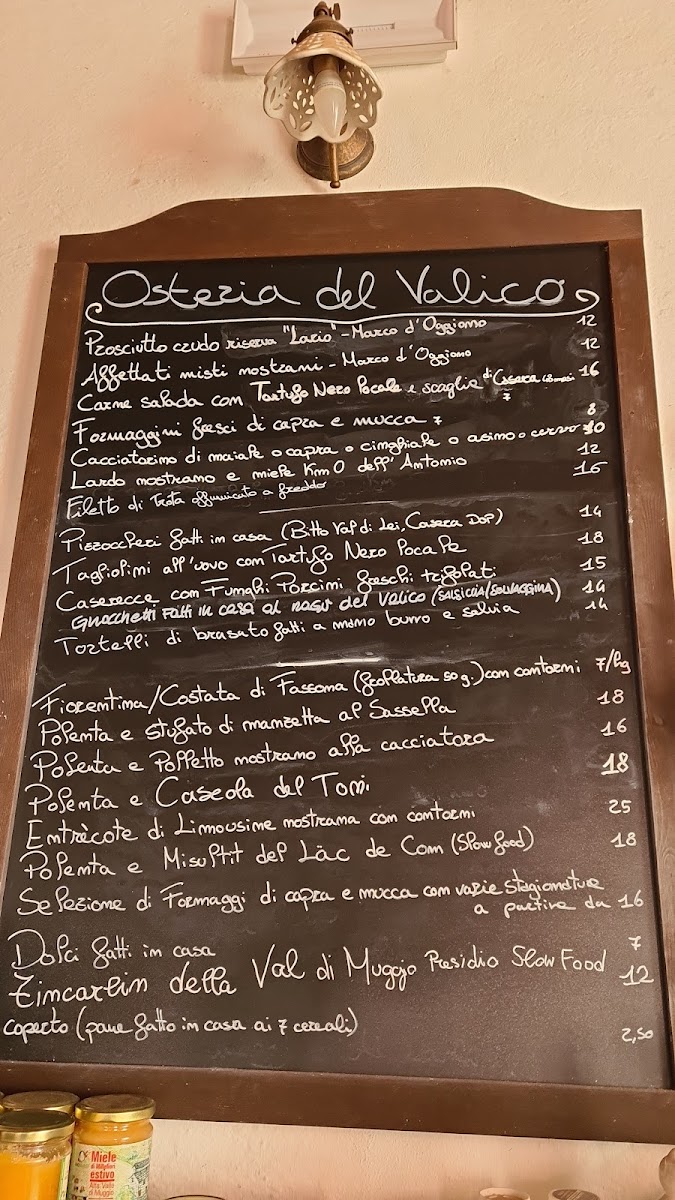 Osteria del Valico
Prosciutto crudo riserva "Lario" - Marco d'Oggiono 12
Affettati misti nostrani - Marco d'Oggiono 12
Carne salada con Tartufo Nero Locale e scaglie di Casera 16
Formaggini freschi di capra e mucca 7 7
Cacciatorino di maiale o capra o cinghiale o asino o cervo 8
Lardo nostrano e miele Km0 dell'Antonio 10
Filetto di Trota affumicato a freddo 12
16
Pizzoccheri fatti in casa (Bitto Val di Lei, Casera DOP) 14
Tagliolini all'uovo con Tartufo Nero Locale 18
Caserecce con Funghi Porcini freschi trifolati 15
Gnocchetti fatti in casa al ragù del Valico (SALSICCIA/SELVAGGINA) 14
Tortelli di brasato fatti a mano burro e salvia 14
Fiorentina/Costata di Fassona (frollatura 50 g.) con contorni 7/hg
Polenta e stufato di manzetta al Sassella 18
Polenta e Polletto nostrano alla cacciatora 16
Polenta e Caseola del Toni 18
Entrècote di Limousine nostrana con contorni 25
Polenta e Misultit del Läc de Com (Slow food) 18
Selezione di Formaggi di capra e mucca con varie stagionature
a partire da 16
Dolci fatti in casa 7
Zincarlin della Val di Muggio Presidio Slow Food 12
coperto (pane fatto in casa ai 7 cereali) 2,50
Miele
di Millefiori
estivo
Alta Valle
di Muggio